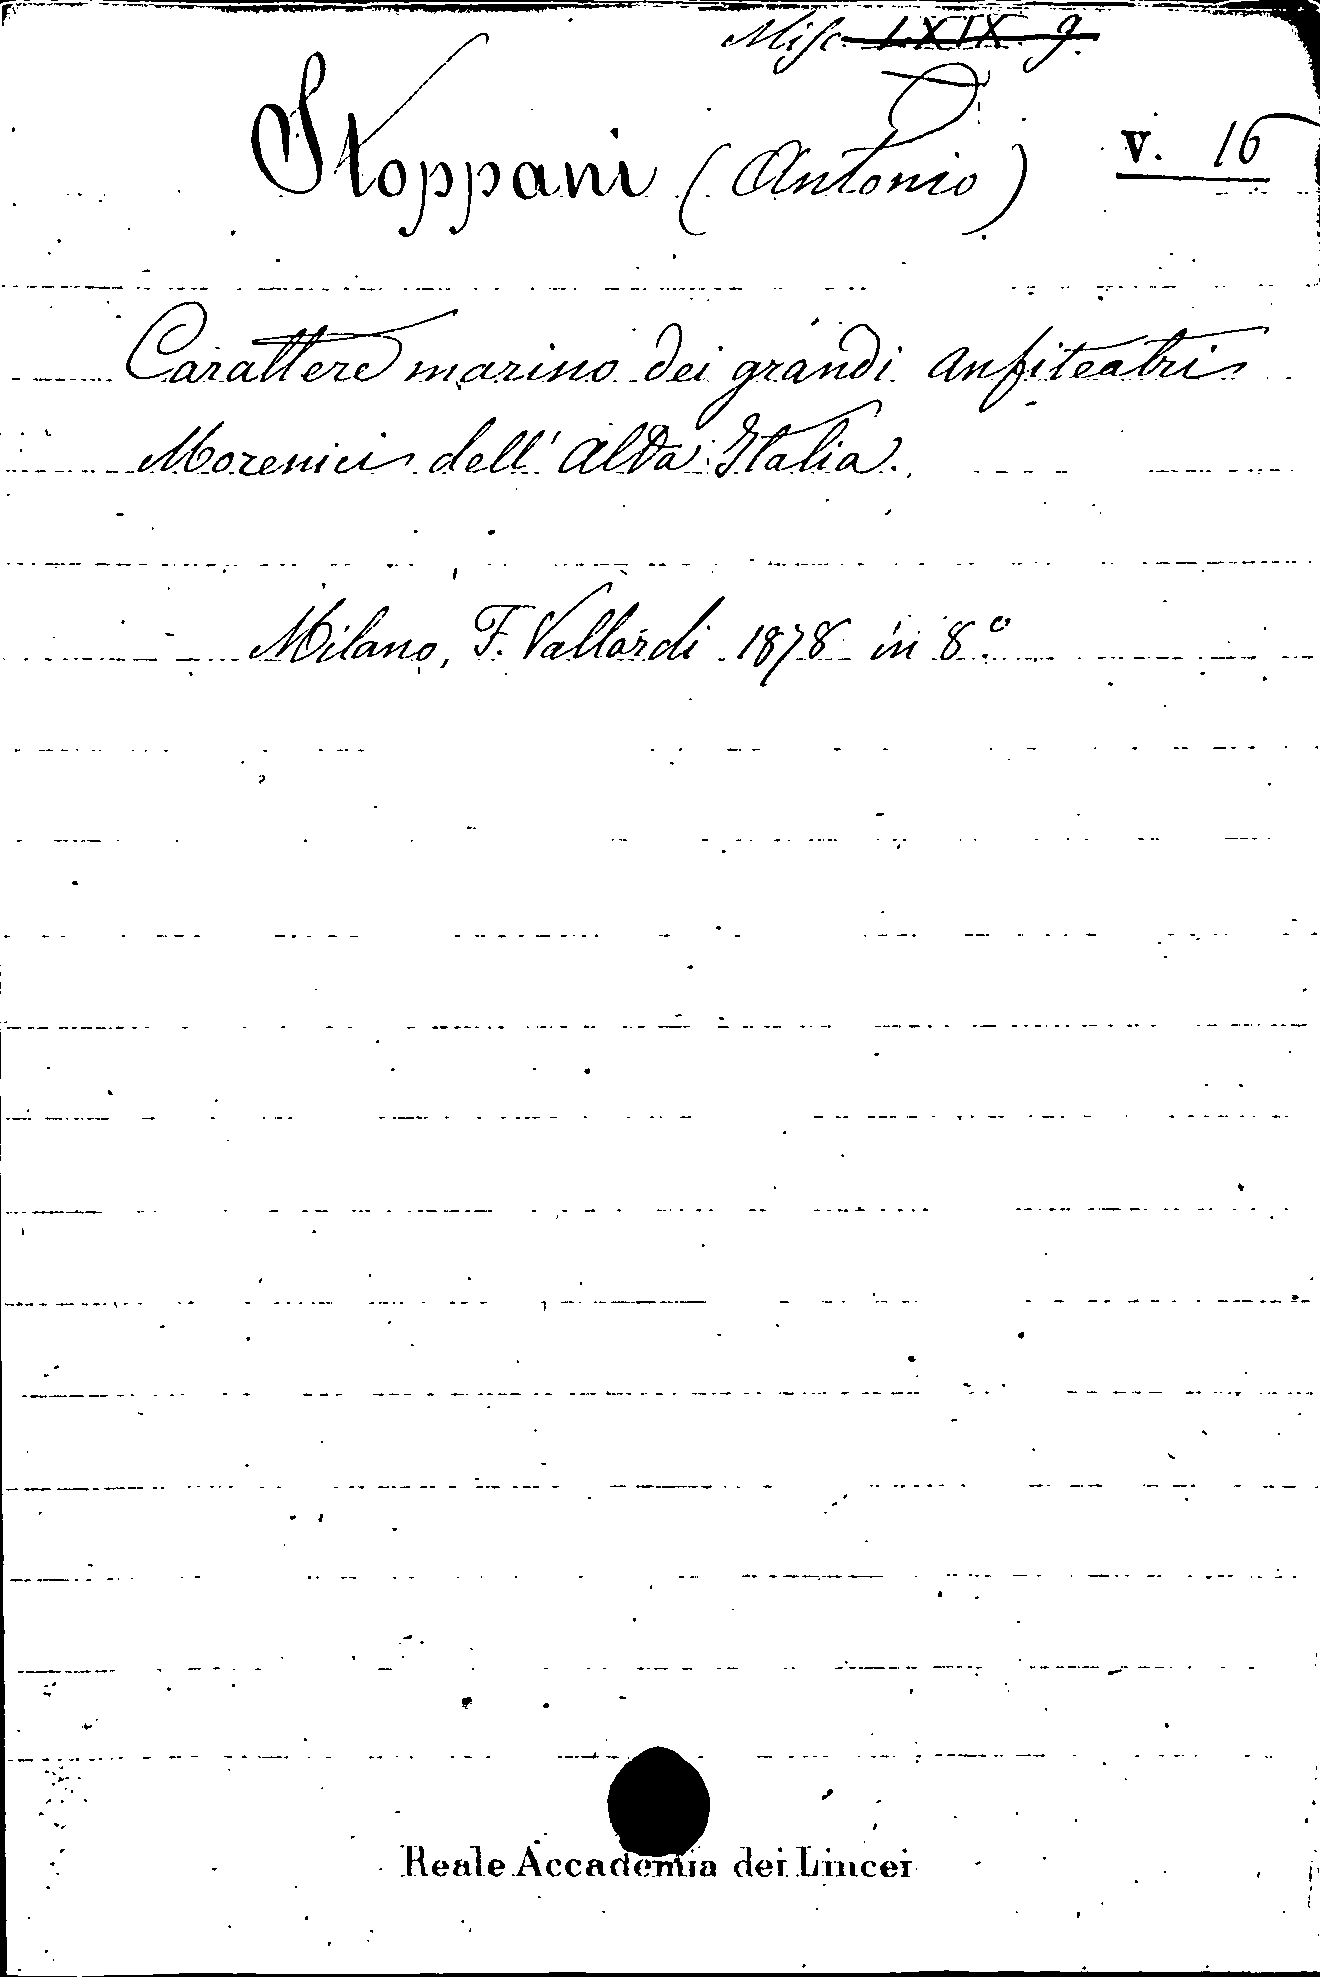 Misc. LXIX. 9.
Stoppani (Antonio)
V. 16
Carattere marino dei grandi anfiteatri
Morenici dell' alta Italia.
Milano, F. Vallardi 1878 in 8.º
Reale Accademia dei Lincei